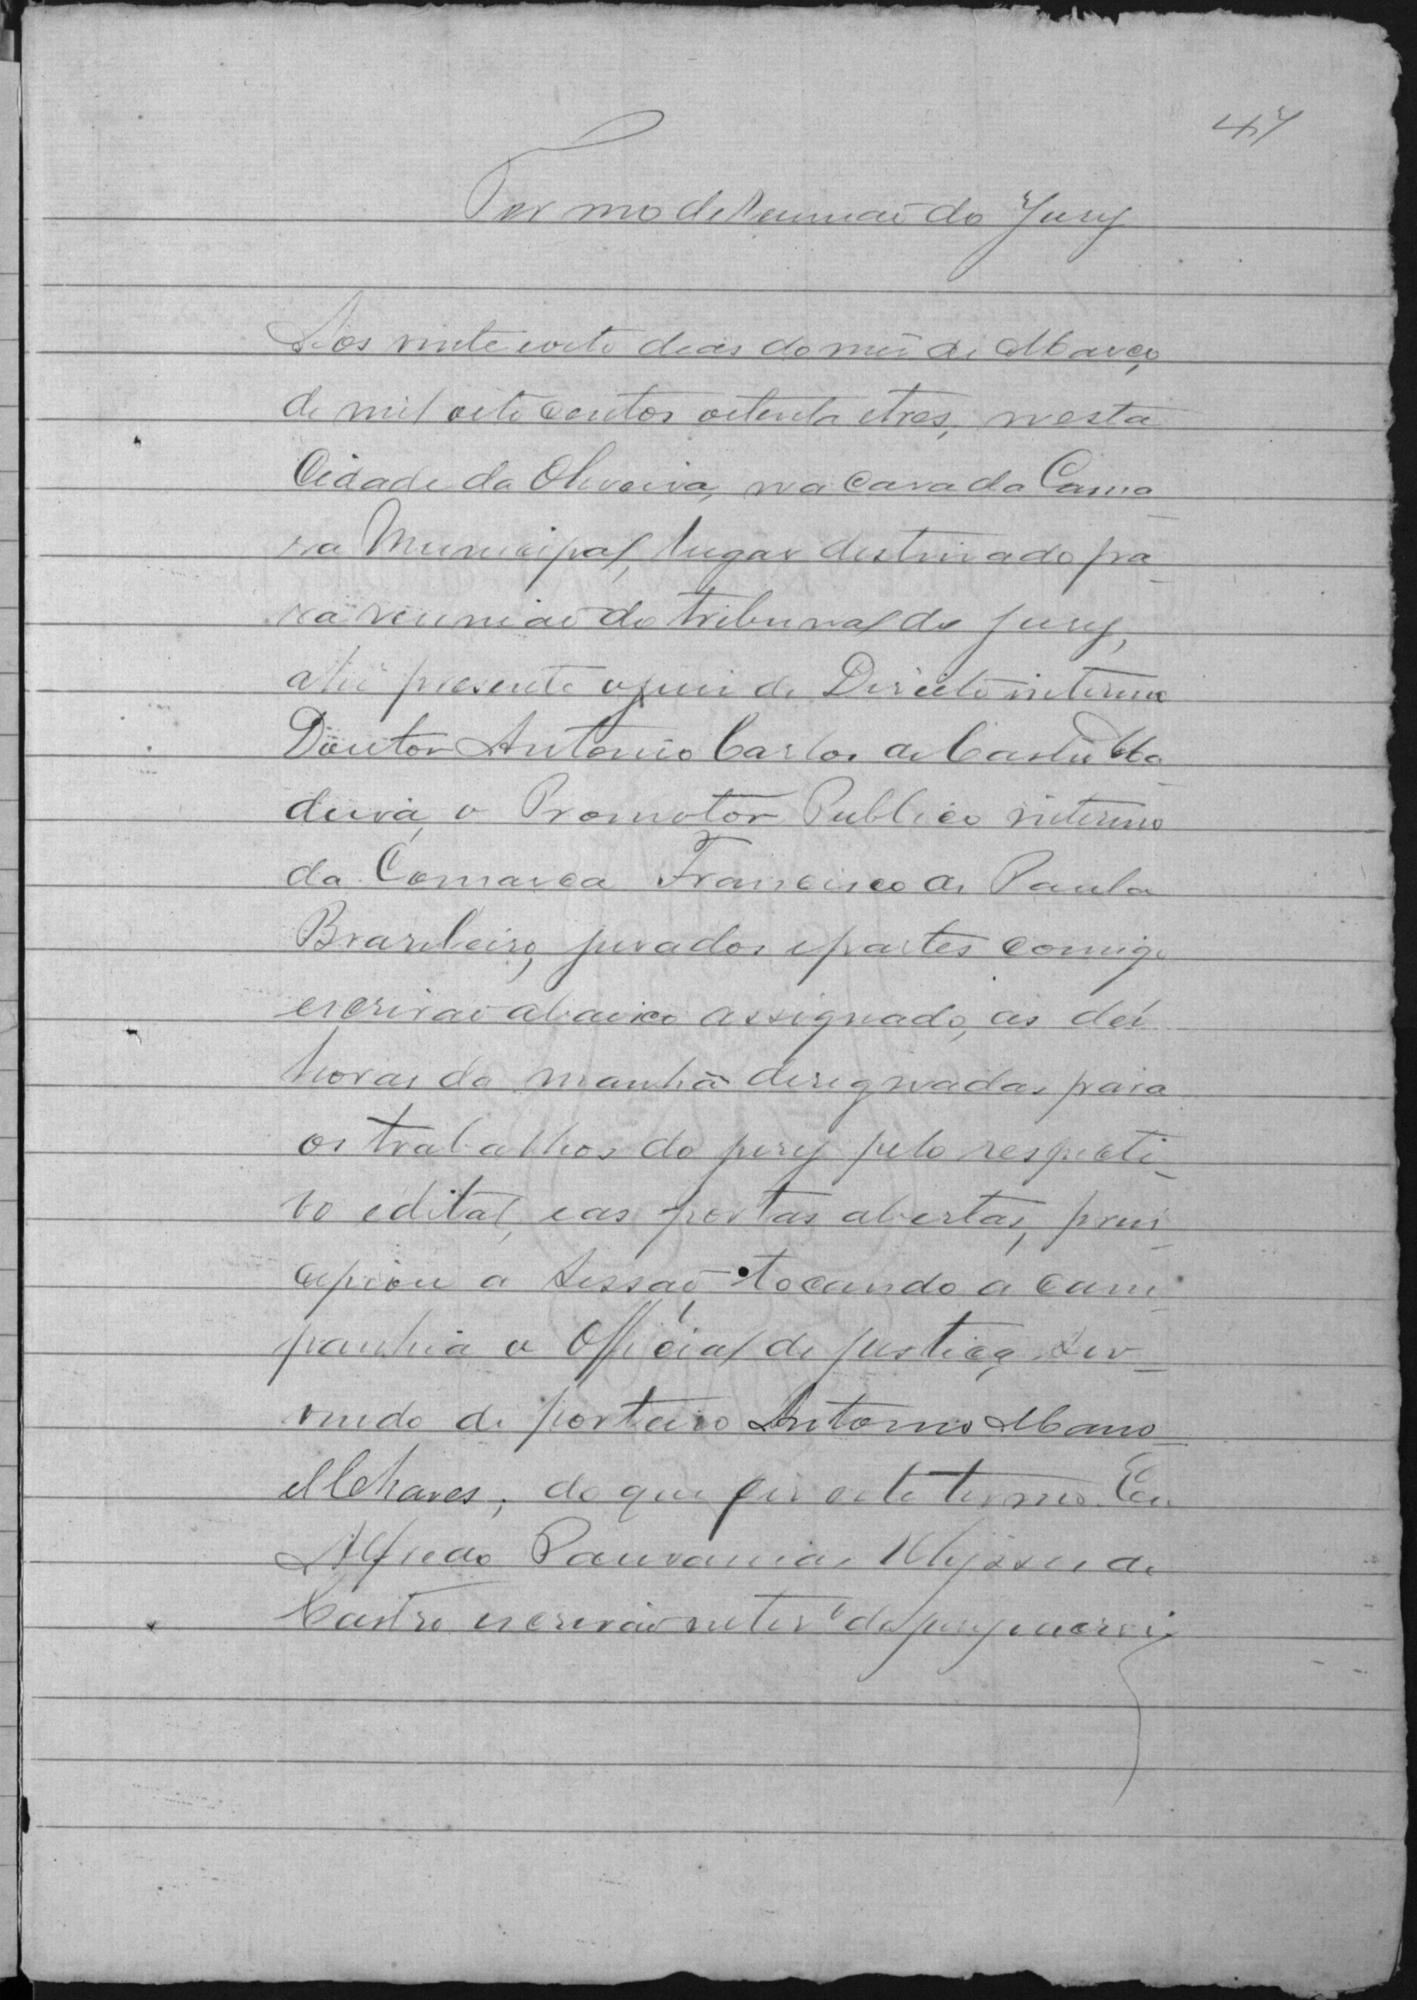 47
Termo de Reuniaõ do Jury
Aos vinte e oito dias do mes de Março
de mil oito centos oitenta e tres, nesta
Cidade da Oliveira, na Casa da Cama-
ra Municipal, lugar destinado pa-
ra reuniaõ do tribunal do jury,
ahi presente o juiz de Direito interino
Doutor Antonio Carlos de Castro Ma-
deira, o Promotor Publico interino
da Comarca Francisco de Paula
Brazileiro, jurados e partes comigo
escrivaõ abaixo assignado, as dez
horas da manhã designadas para
os trabalhos do jury pelo respecti-
vo edital, e as portas abertas, prin-
cipiou a sessaõ tocando a cam-
panhia o Official de justiça ser-
vindo de porteiro Antonio Mano-
el Chaves; do que fiz este termo. Eu
Alfredo Ulysses de
Castro escrivaõ inter.º do jury escrevi.